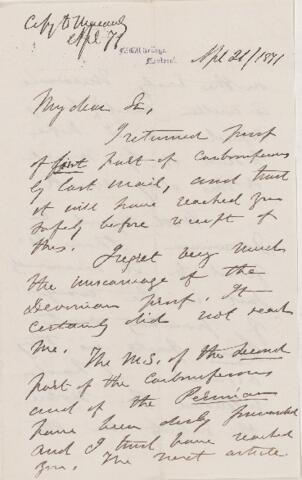 Apl 71
McGill College
Montreal
Apl 21/1871
My dear Sir,
I returned proof
of first part of carboniferous
by last mail, and trust
it will have reached you
safely before receipt of
this. I regret very much
the miscarriage of the
Devonian proof. It
certainly did not reach
me.
The M.S. of the second
part of the carboniferous
and of the Permian
have been duly forwarded
and I trust have reached
you. The next article